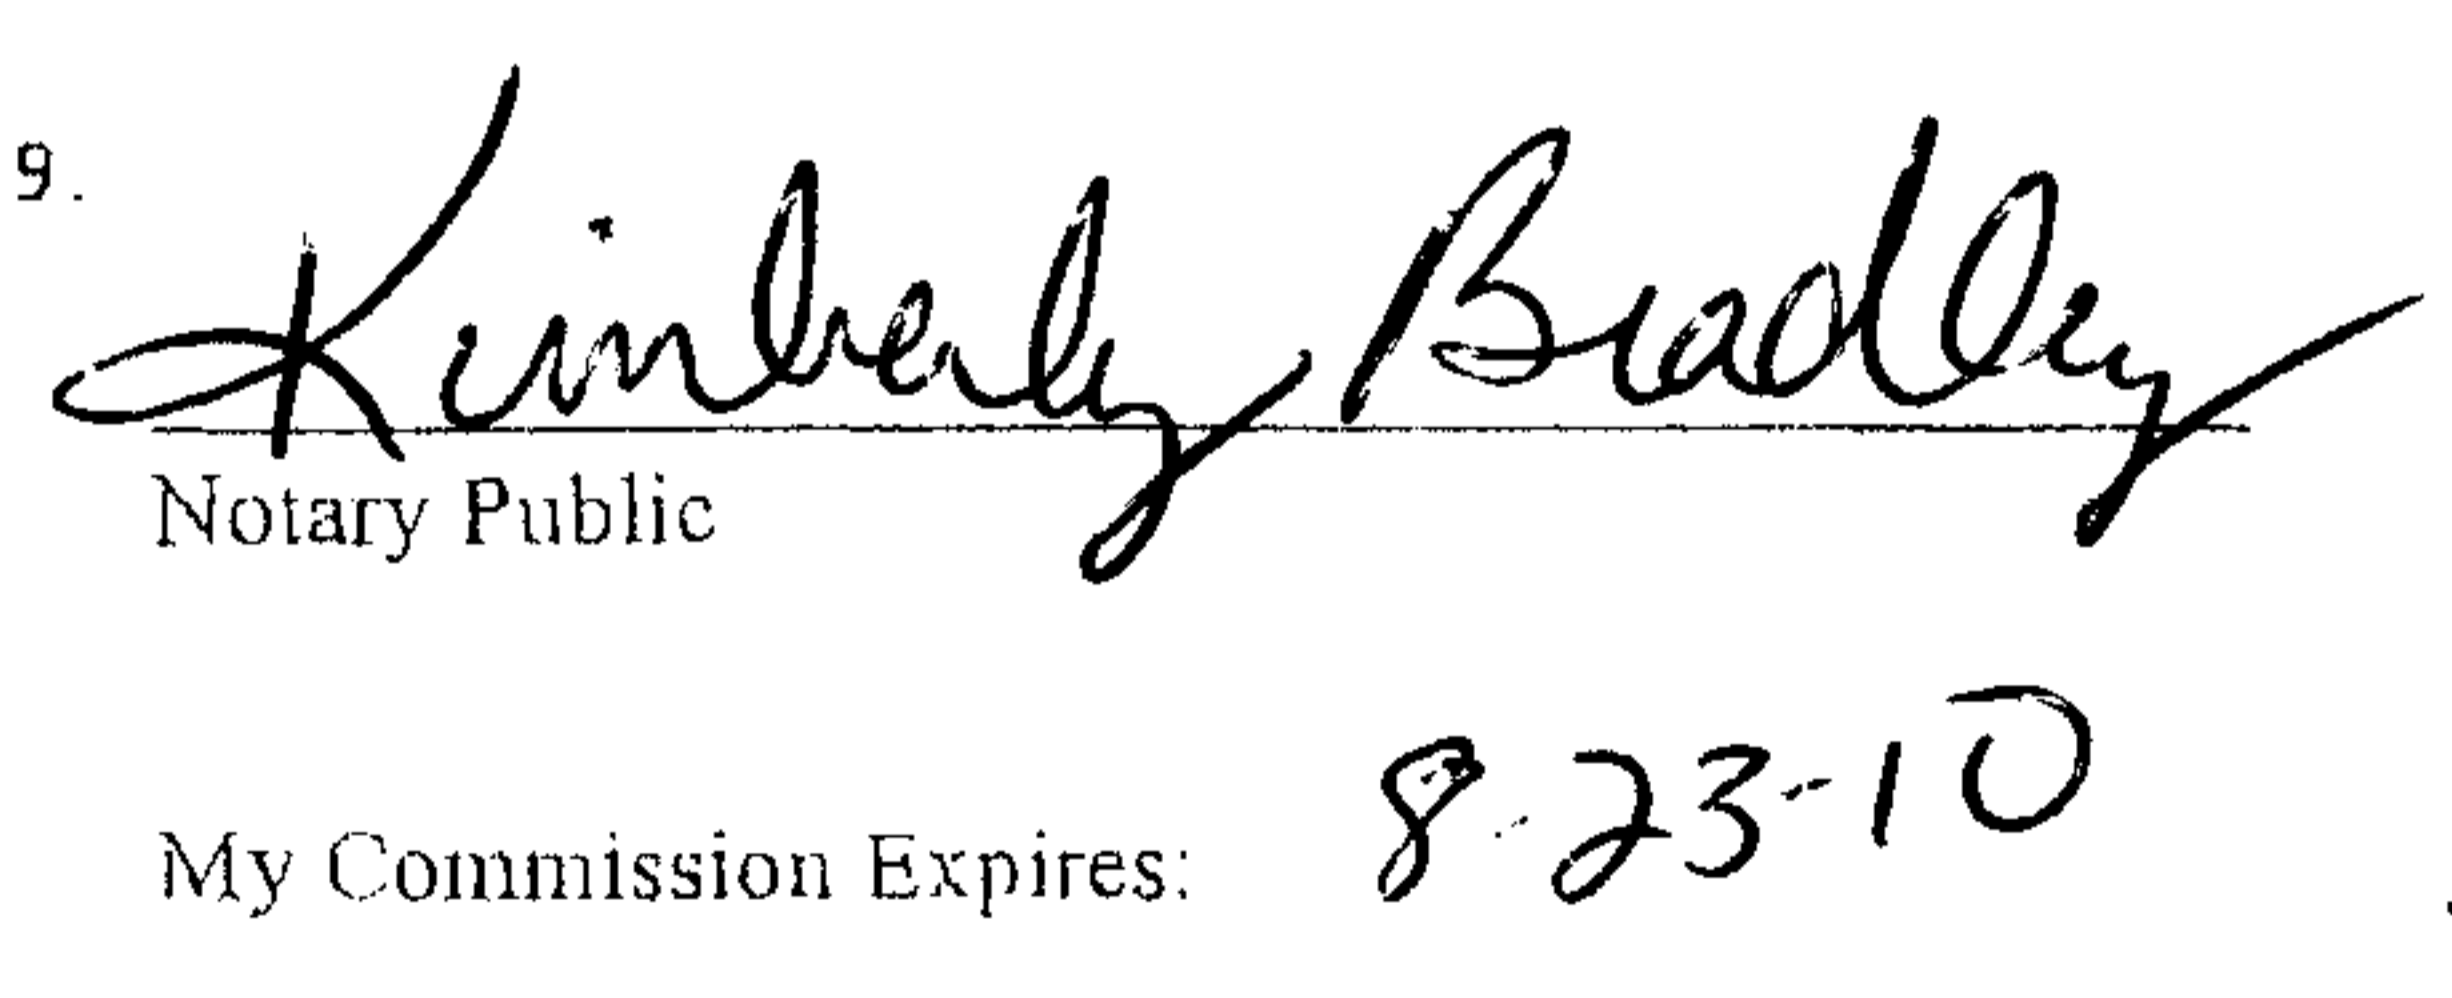 9.
Kimberly Bradley
Notary Public
My Commission Expires: 8-23-10